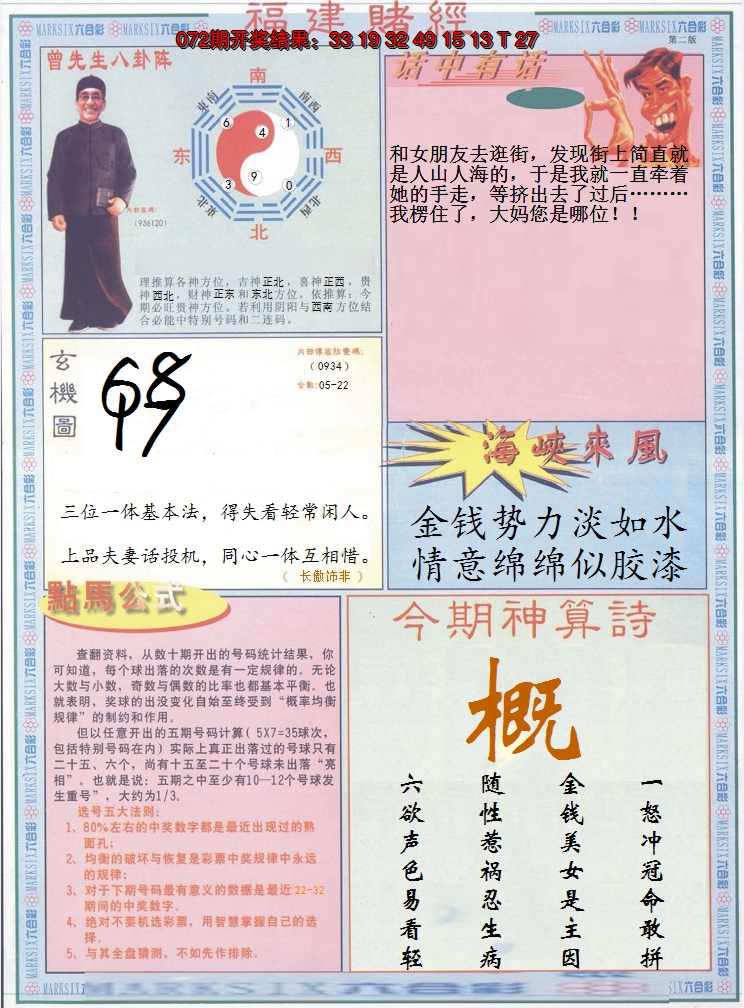 福建賭經
072期开奖结果：33 19 32 49 15 13 T 27
MARKSIX六合彩
第二版
曾先生八卦阵
南
東南
南西
6
4
1
东
西
3
9
0
東北
北西
北
內部密碼:
(936120)
理推算各神方位，吉神正北，喜神正西，贵
神西北，财神正东和东北方位。依推算：今
期必旺贵神方位。若利用阴阳与西南方位结
合必能中特别号码和二连码。
话中有话
和女朋友去逛街，发现街上简直就
是人山人海的，于是我就一直牵着
她的手走，等挤出去了过后………
我楞住了，大妈您是哪位！！
玄機圖
内部傳密防變碼:
(0934)
合數:05-22
三位一体基本法，得失看轻常闲人。
上品夫妻话投机，同心一体互相惜。
（ 长傲饰非 ）
海峽來風
金钱势力淡如水
情意绵绵似胶漆
點馬公式
查翻资料，从数十期开出的号码统计结果，你
可知道，每个球出落的次数是有一定规律的。无论
大数与小数，奇数与偶数的比率也都基本平衡。也
就表明，奖球的出没变化自始至终受到“概率均衡
规律”的制约和作用。
但以任意开出的五期号码计算（5X7=35球次，
包括特别号码在内）实际上真正出落过的号球只有
二十五、六个，尚有十五至二十个号球未出落“亮
相”。也就是说：五期之中至少有10—12个号球发
生重号”，大约为1/3。
选号五大法则：
1、80%左右的中奖数字都是最近出现过的熟
面孔；
2、均衡的破坏与恢复是彩票中奖规律中永远
的规律；
3、对于下期号码最有意义的数据是最近22-32
期间的中奖数字。
4、绝对不要机选彩票，用智慧掌握自己的选
择。
5、与其全盘猜测，不如先作排除。
今期神算詩
概
一怒冲冠命敢拼
金钱美女是主因
随性惹祸忍生病
六欲声色易看轻